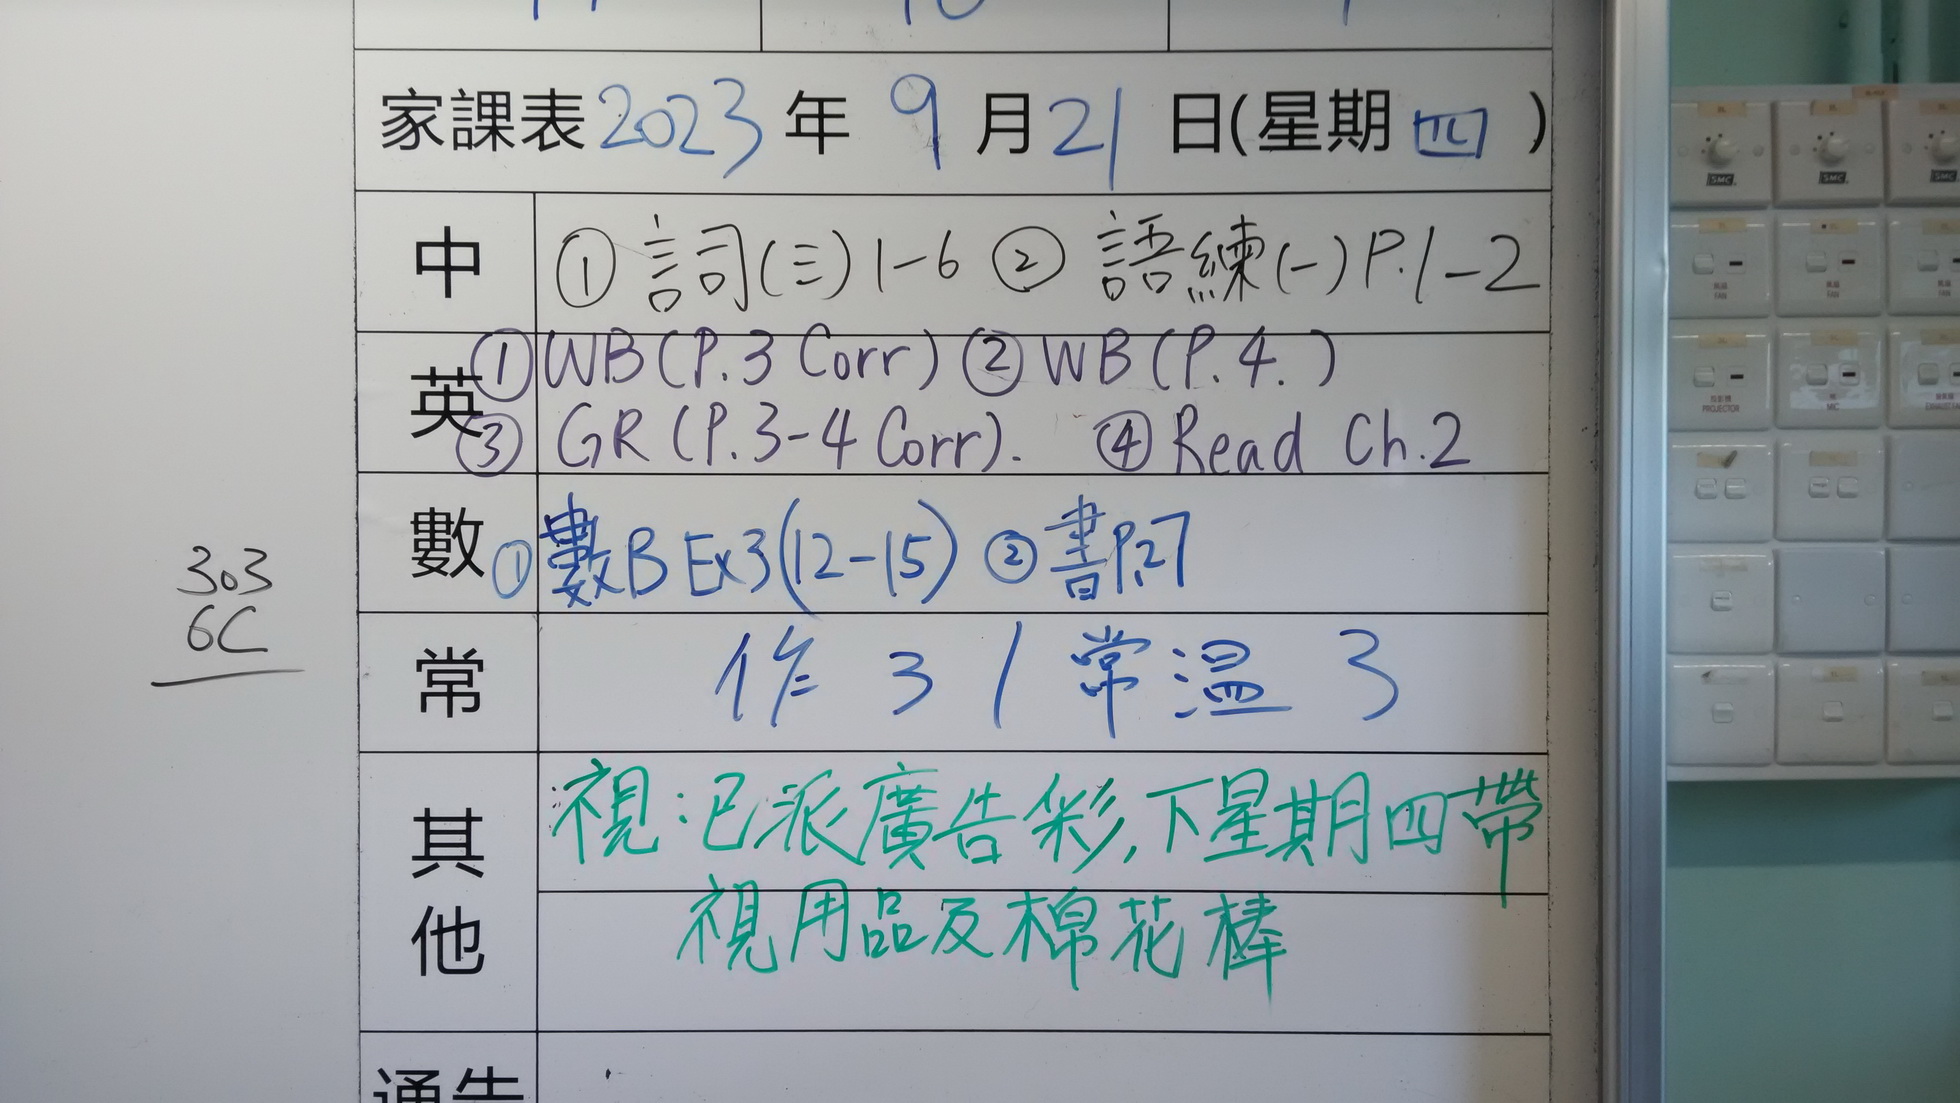 家課表 2023 年 9 月 21 日(星期 四 )
中 ① 詞(三) 1-6 ② 語練(一) P.1-2
英 ① WB (P.3 Corr) ② WB (P.4.)
③ GR (P.3-4 Corr). ④ Read Ch.2
數 ① 數B Ex3(12-15) ② 書P.27
303
6C
常 作 3 / 常温 3
其他 視:已派廣告彩,下星期四帶
視用品及棉花棒
通告
SMC SMC SMC
FAN FAN FAN
PROJECTOR MIC